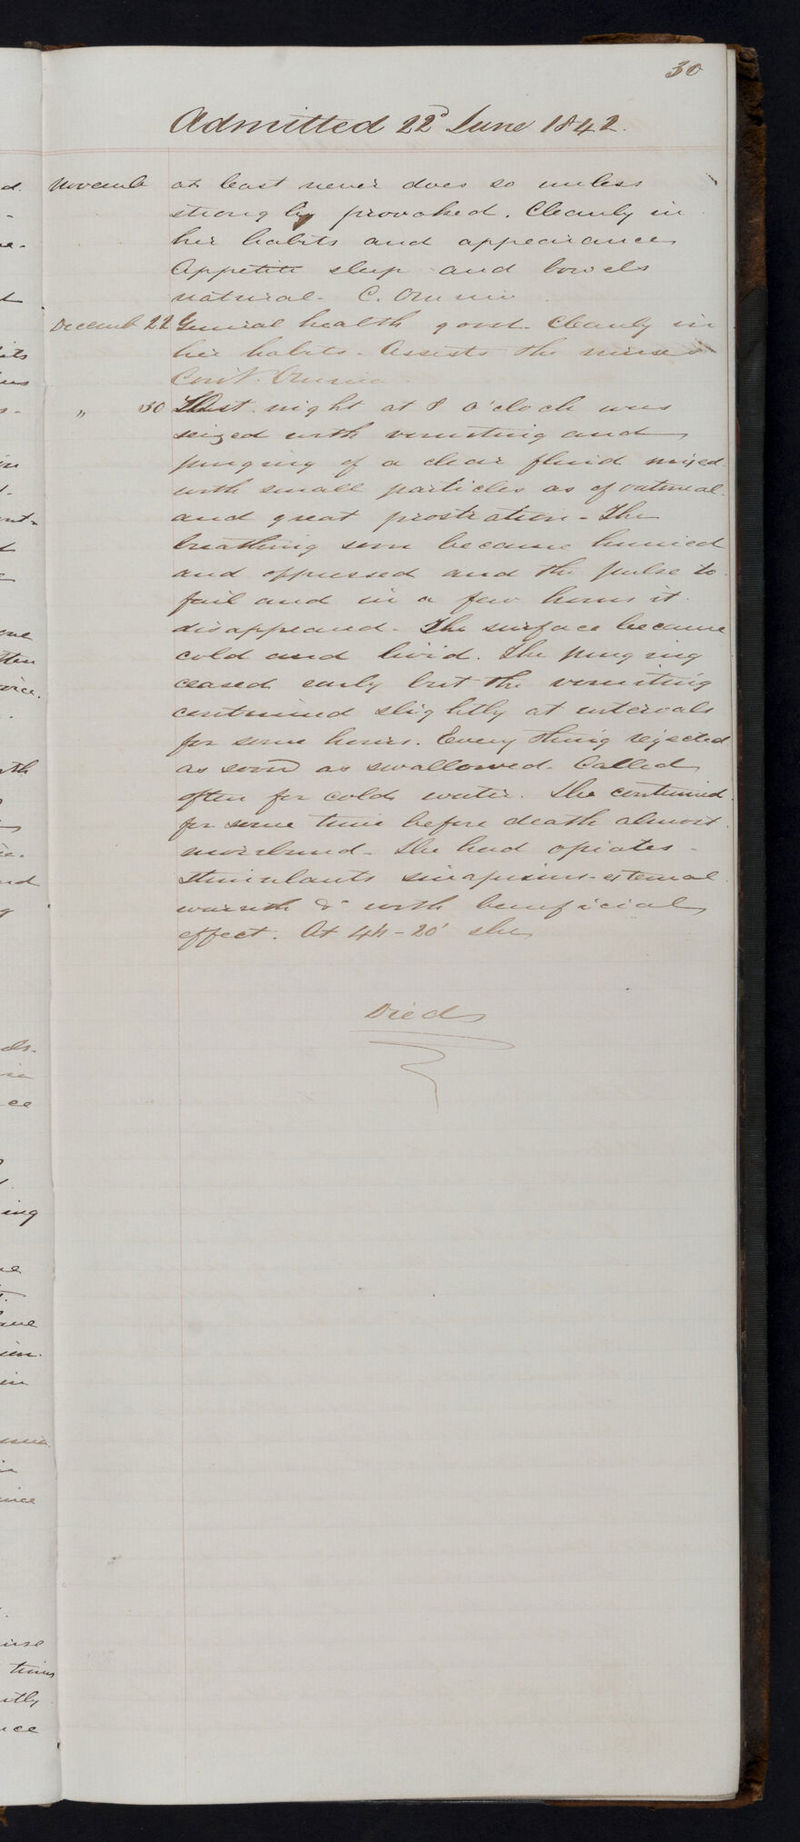 30
Admitted 22d June 1842.
Novemb at least never does so unless
strongly provoked. Cleanly in
her habits and appearance
Appetite sleep and bowels
natural. C.
Decemb 22 General health good. Cleanly in
her habits. Assists the nurse
Cont.
" 30 Last night at 8 o'clock was
seized with vomiting and
purging of a clear fluid mixed
with small particles as of oatmeal
and great prostration - The
breathing soon became hurried
and oppressed and the pulse to
fail and in a few hours it
disappeared - The surface became
cold and livid. The purging
ceased early but the vomiting
continued slightly at intervals
for some hours. Every thing rejected
as soon as swallowed. Called
often for cold water. She continued
for some time before death almost
moribund - She had opiates -
Stimulants sinapisms - external
warmth &c with beneficial
effect. At 4h - 20' she
Died